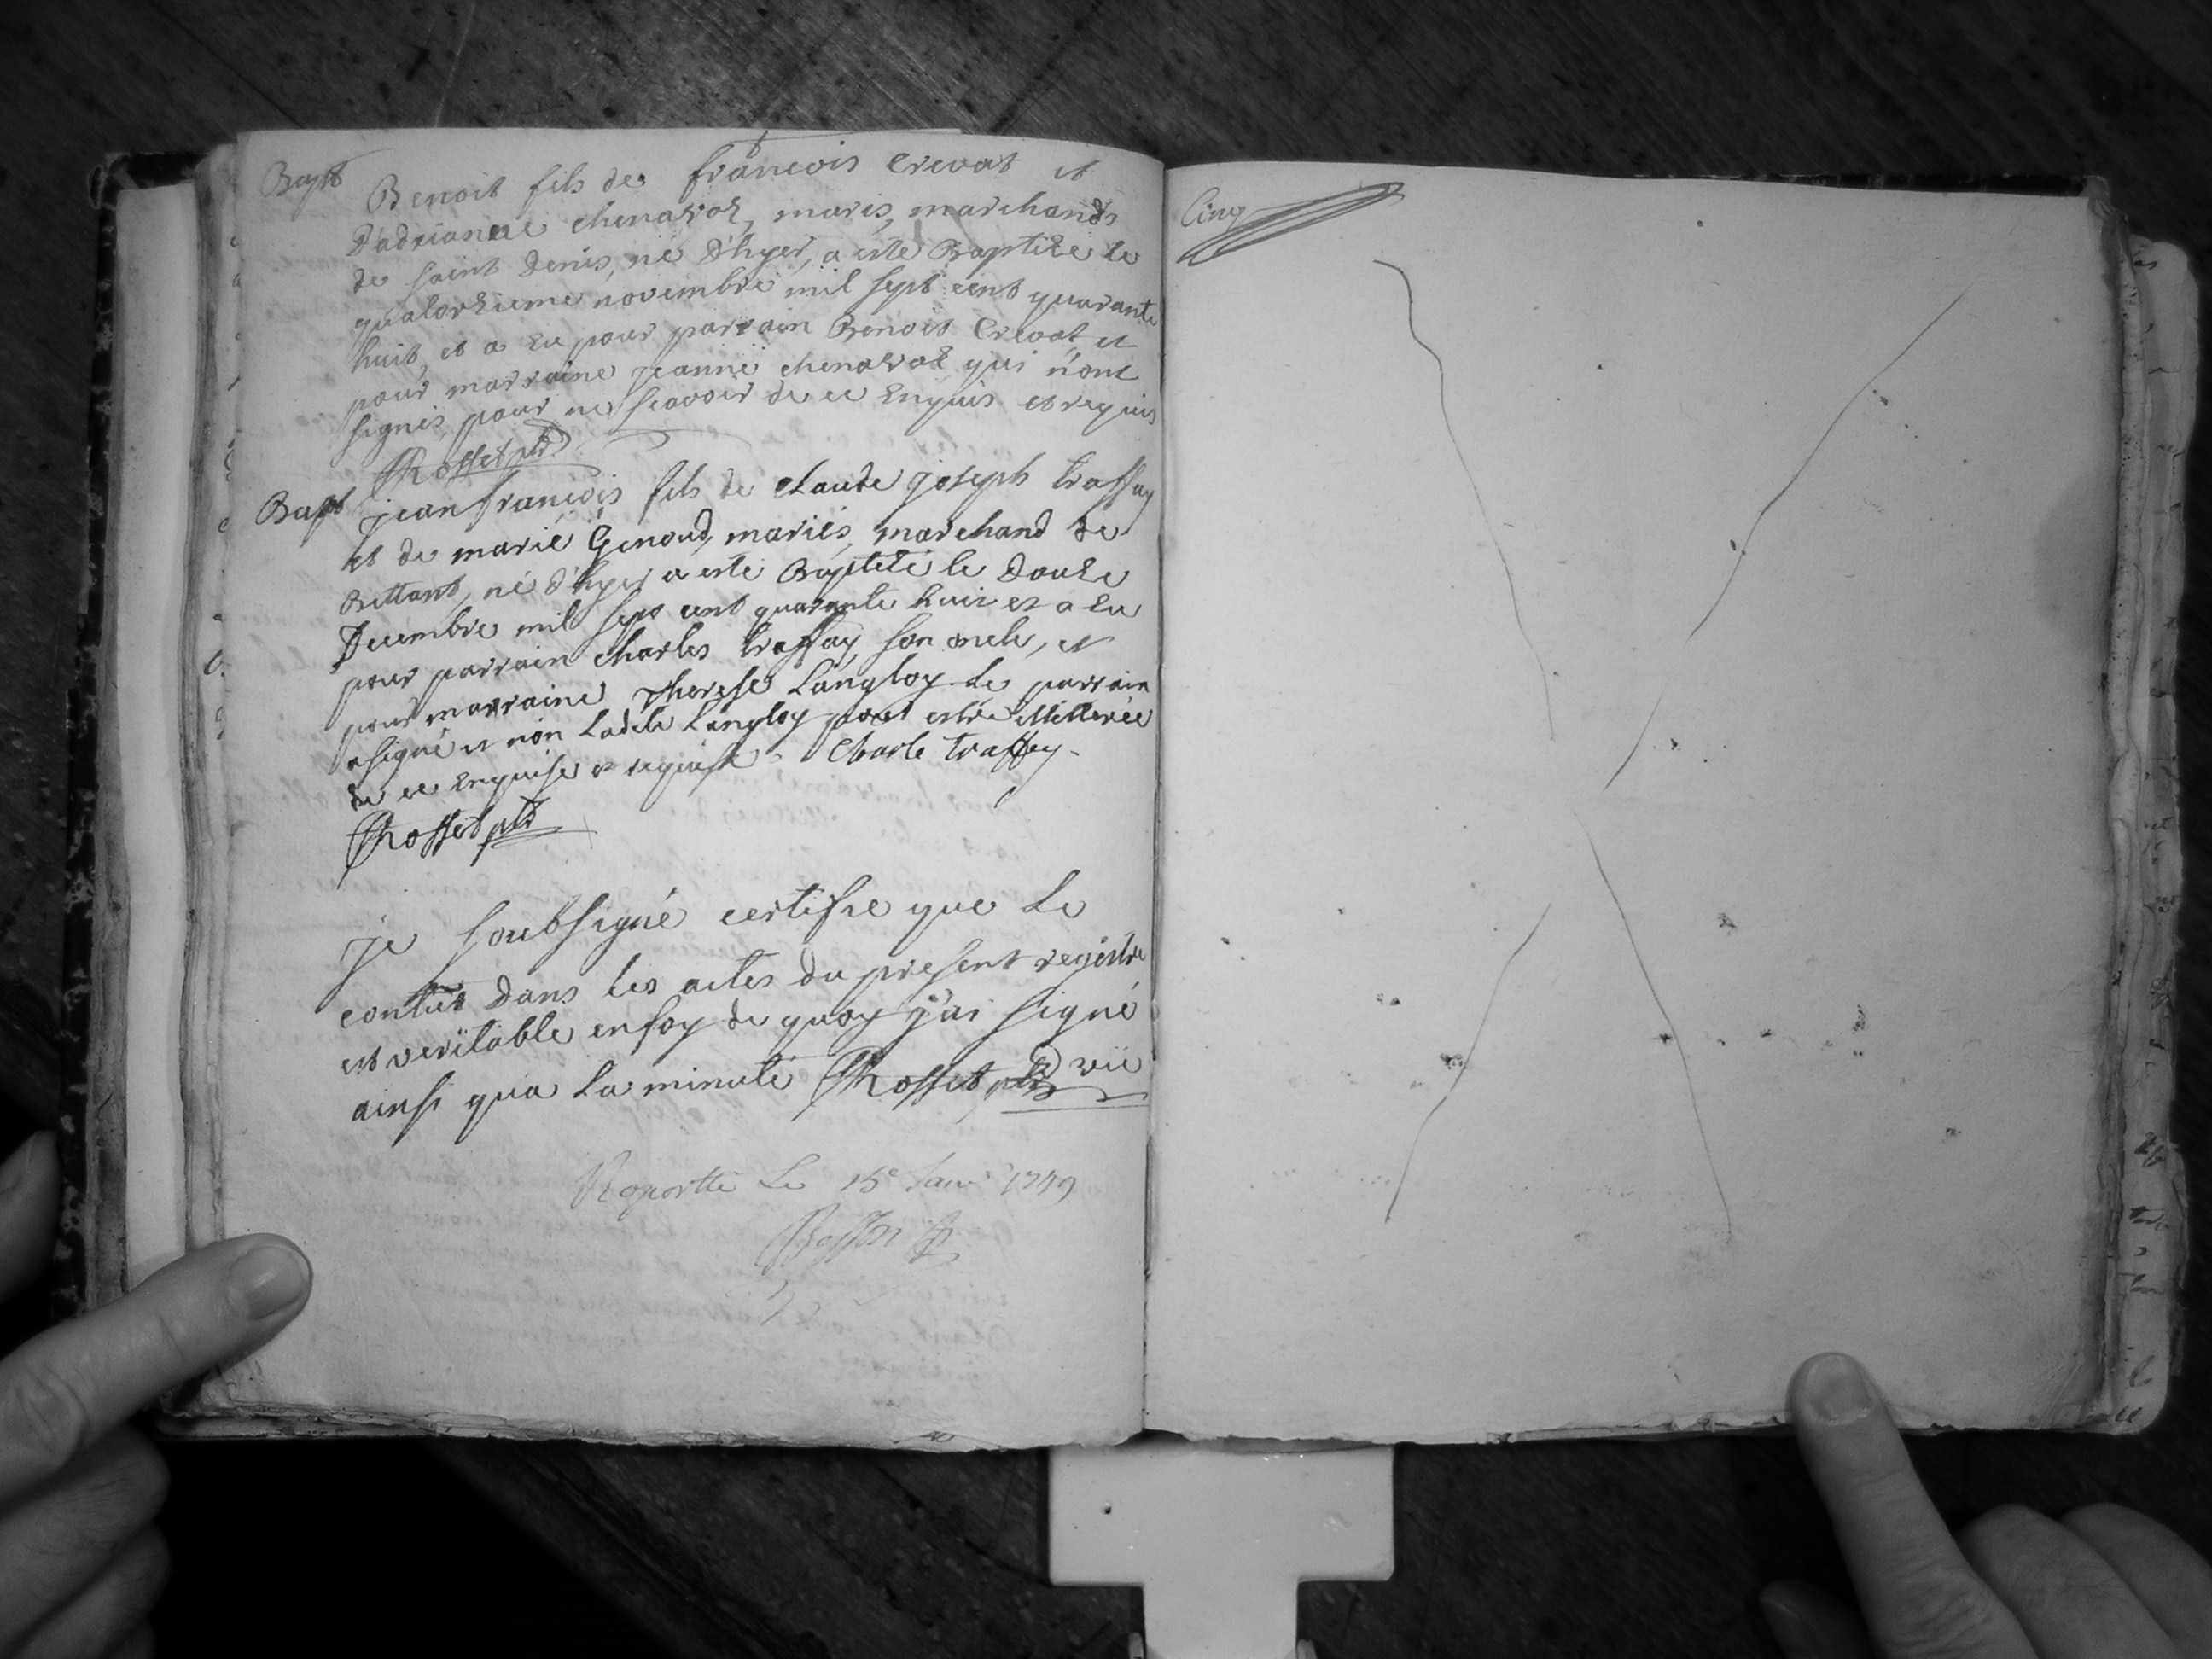 Bapt Benoit fils de françois Crevat et
D'adrianne chenavoz, mariés, marchands
de saint Denis, né d'hyer, a este Baptize le
quatorzieme novembre mil sept cent quarante
huit, et a eu pour parrain Benoit Crevat, et
pour marraine jeanne chenavoz qui n'ont
signés, pour ne scavoir de ce enquis et requis
Rosset ptr
Bapt jean françois fils de claude joseph traffay
et de marie Genoud, mariés, marchand de
Bettant, né d'hyer a este Baptizé le douze
Decembre mil sept cent quarante huit et a eu
pour parrain charles traffay, son oncle, et
pour marraine Therese Langloy. Le parrain
a signé et non Ladite Langloy pour estre illitterée
de ce enquise et requise. Charle traffey.
Rosset ptr
je soubsigné certiffie que le
contenu dans les actes du present registre
est veritable en foy de quoy j'ai signé
ainsi qua la minute Rosset ptr vic
Raportté Le 15e Janv. 1749
Cinq